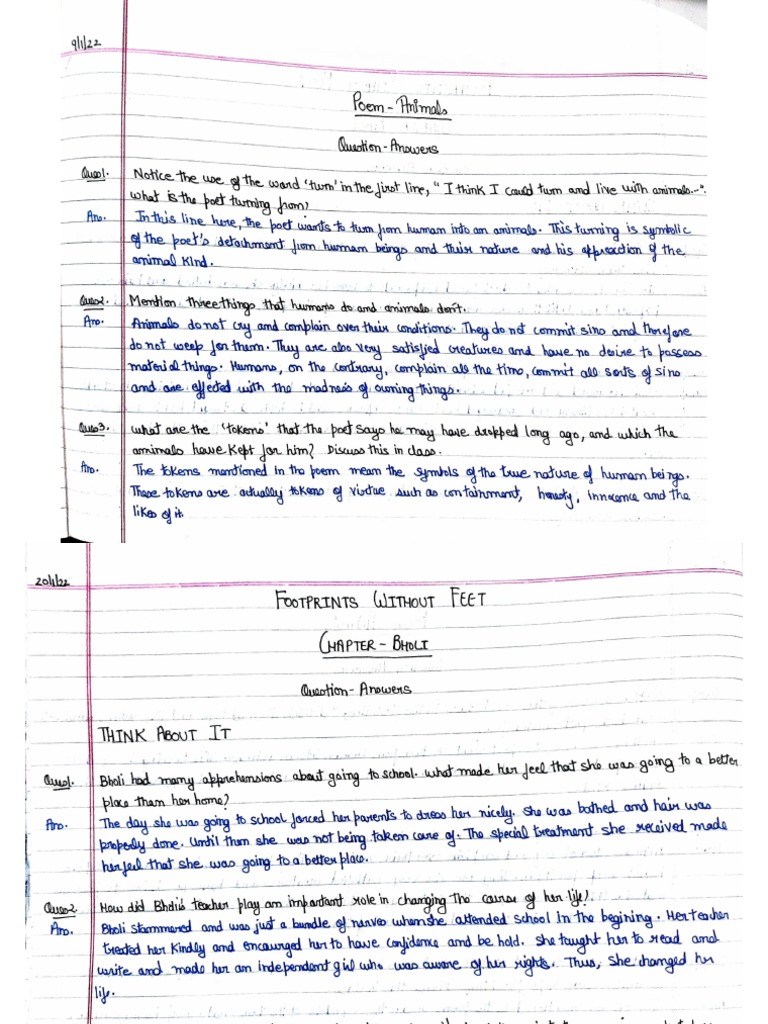 9/1/22
Poem - Animals
Question - Answers
Ques1. Notice the use of the word 'turn' in the first line, "I think I could turn and live with animals...".
what is the poet turning from?
Ans. In this line here, the poet wants to turn from human into an animals. This turning is symbolic
of the poet's detachment from human beings and their nature and his appreaction of the
animal kind.
Ques2. Mention three things that humans do and animals don't.
Ans. Animals do not cry and complain over their conditions. They do not commit sins and therefore
do not weep for them. They are also very satisfied creatures and have no desire to possess
material things. Humans, on the contrary, complain all the time, commit all sorts of sins
and are effected with the madness of owning things.
Ques3. what are the 'tokens' that the poet says he may have dropped long ago, and which the
animals have kept for him? Discuss this in class.
Ans. The tokens mentioned in the poem mean the symbols of the true nature of human beings.
These tokens are actually tokens of virtue such as containment, honesty, innocence and the
likes of it.
20/1/22
FOOTPRINTS WITHOUT FEET
CHAPTER - BHOLI
Question - Answers
THINK ABOUT IT
Ques1. Bholi had many apprehensions about going to school. what made her feel that she was going to a better
place than her home?
Ans. The day she was going to school forced her parents to dress her nicely. She was bathed and hair was
properly done. Until then she was not being taken care of. The special treatment she received made
her feel that she was going to a better place.
Ques2. How did Bholi's teacher play an important role in changing the course of her life?
Ans. Bholi stammered and was just a bundle of nerves when she attended school in the begining. Her teacher
treated her kindly and encourged her to have confidence and be bold. She taught her to read and
write and made her an independent girl who was aware of her rights. Thus, she changed her
life.